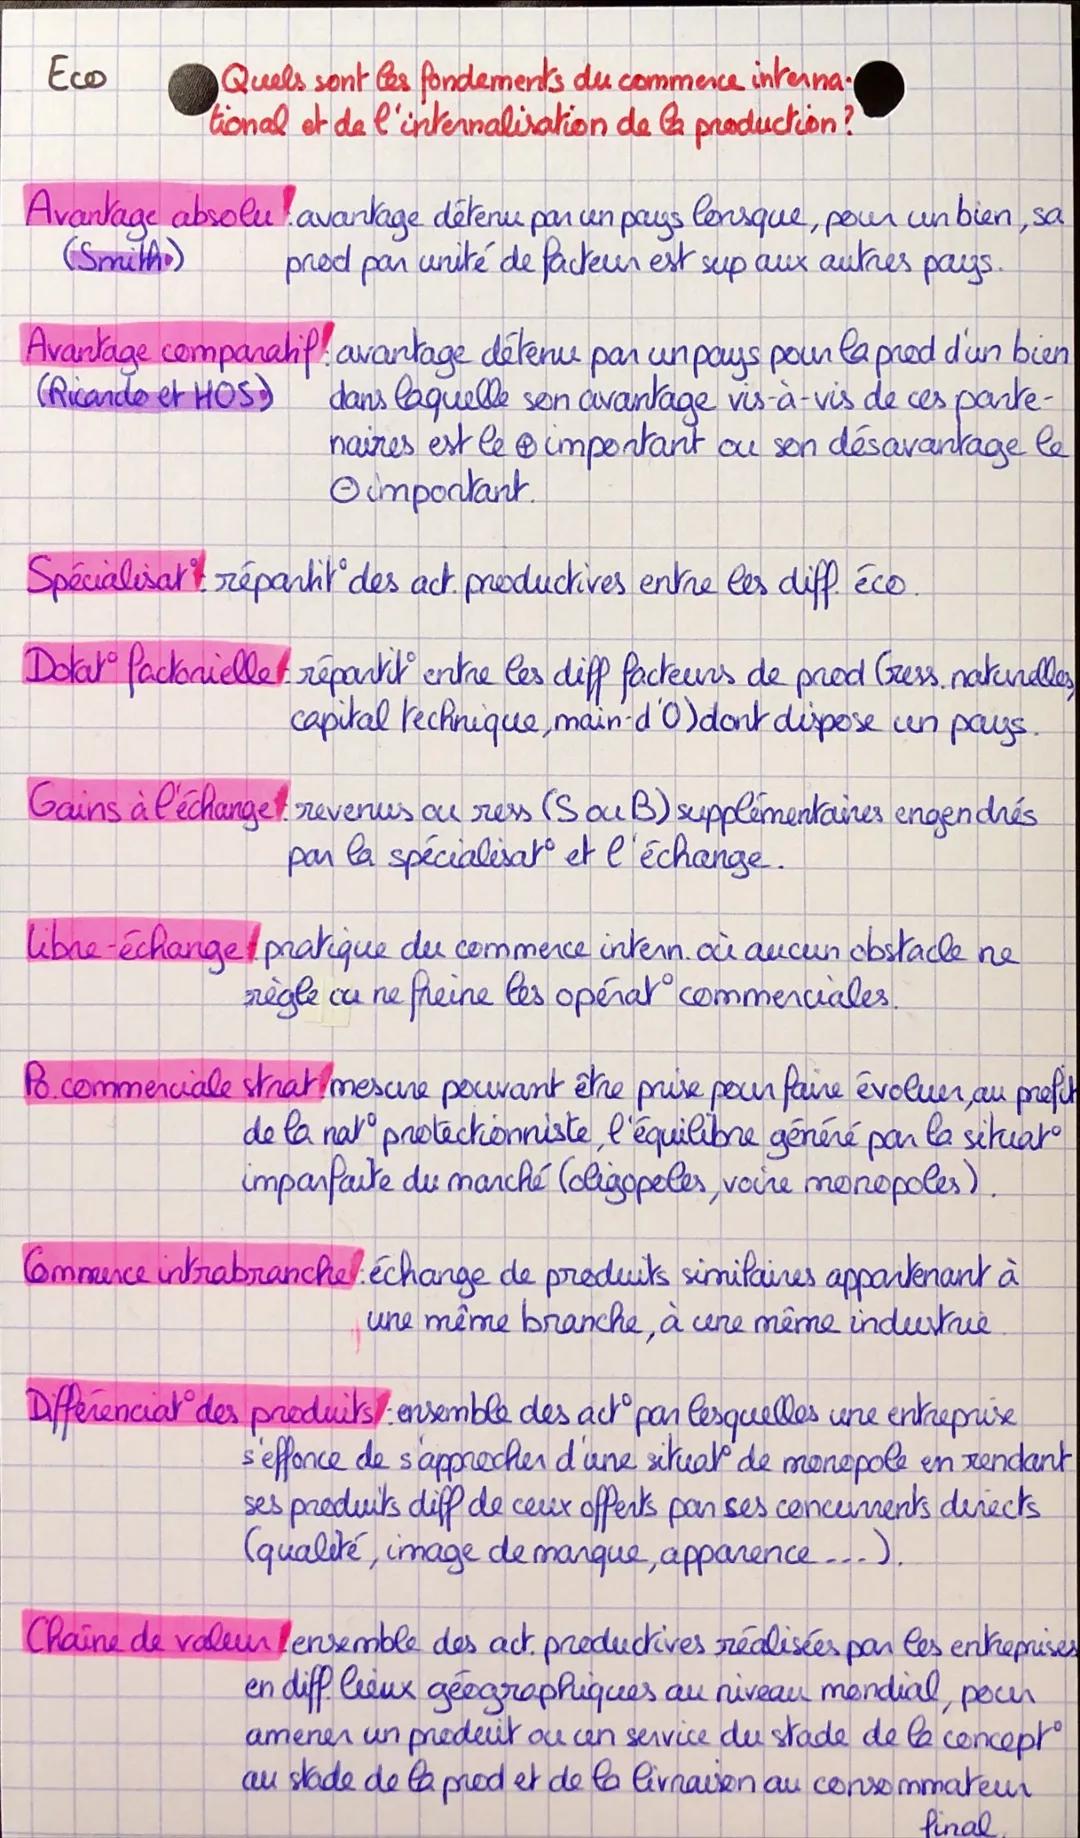 Eco
Quels sont les fondements du commerce interna-
tional et de l'internalisation de la production?
Avantage absolu : avantage détenu par un pays lorsque, pour un bien, sa
(Smith) prod par unité de facteur est sup aux autres pays.
Avantage comparatif : avantage détenu par un pays pour la prod d'un bien
(Ricardo et HOS) dans laquelle son avantage vis-à-vis de ces parte-
naires est le ⊕ important ou son désavantage le
⊖ important.
Spécialisat° : répartit° des act. productives entre les diff. éco.
Dotat° factorielle : répartit° entre les diff facteurs de prod (ress. naturelles,
capital technique, main-d'O) dont dispose un pays.
Gains à l'échange : revenus ou ress (S ou B) supplémentaires engendrés
par la spécialisat° et l'échange.
libre-échange : pratique du commerce intern. où aucun obstacle ne
règle ou ne freine les opérat° commerciales.
Po. commerciale strat : mesure pouvant être prise pour faire évoluer, au profit
de la nat° protectionniste, l'équilibre généré par la situat°
imparfaite du marché (oligopoles, voire monopoles).
Commerce intrabranche : échange de produits similaires appartenant à
une même branche, à une même industrie
Différenciat° des produits : ensemble des act° par lesquelles une entreprise
s'efforce de s'approcher d'une situat° de monopole en rendant
ses produits diff de ceux offerts par ses concurrents directs
(qualité, image de marque, apparence ....).
Chaîne de valeur : ensemble des act. productives réalisées par les entreprises
en diff. lieux géographiques au niveau mondial, pour
amener un produit ou un service du stade de la concept°
au stade de la prod et de la livraison au consommateur
final.